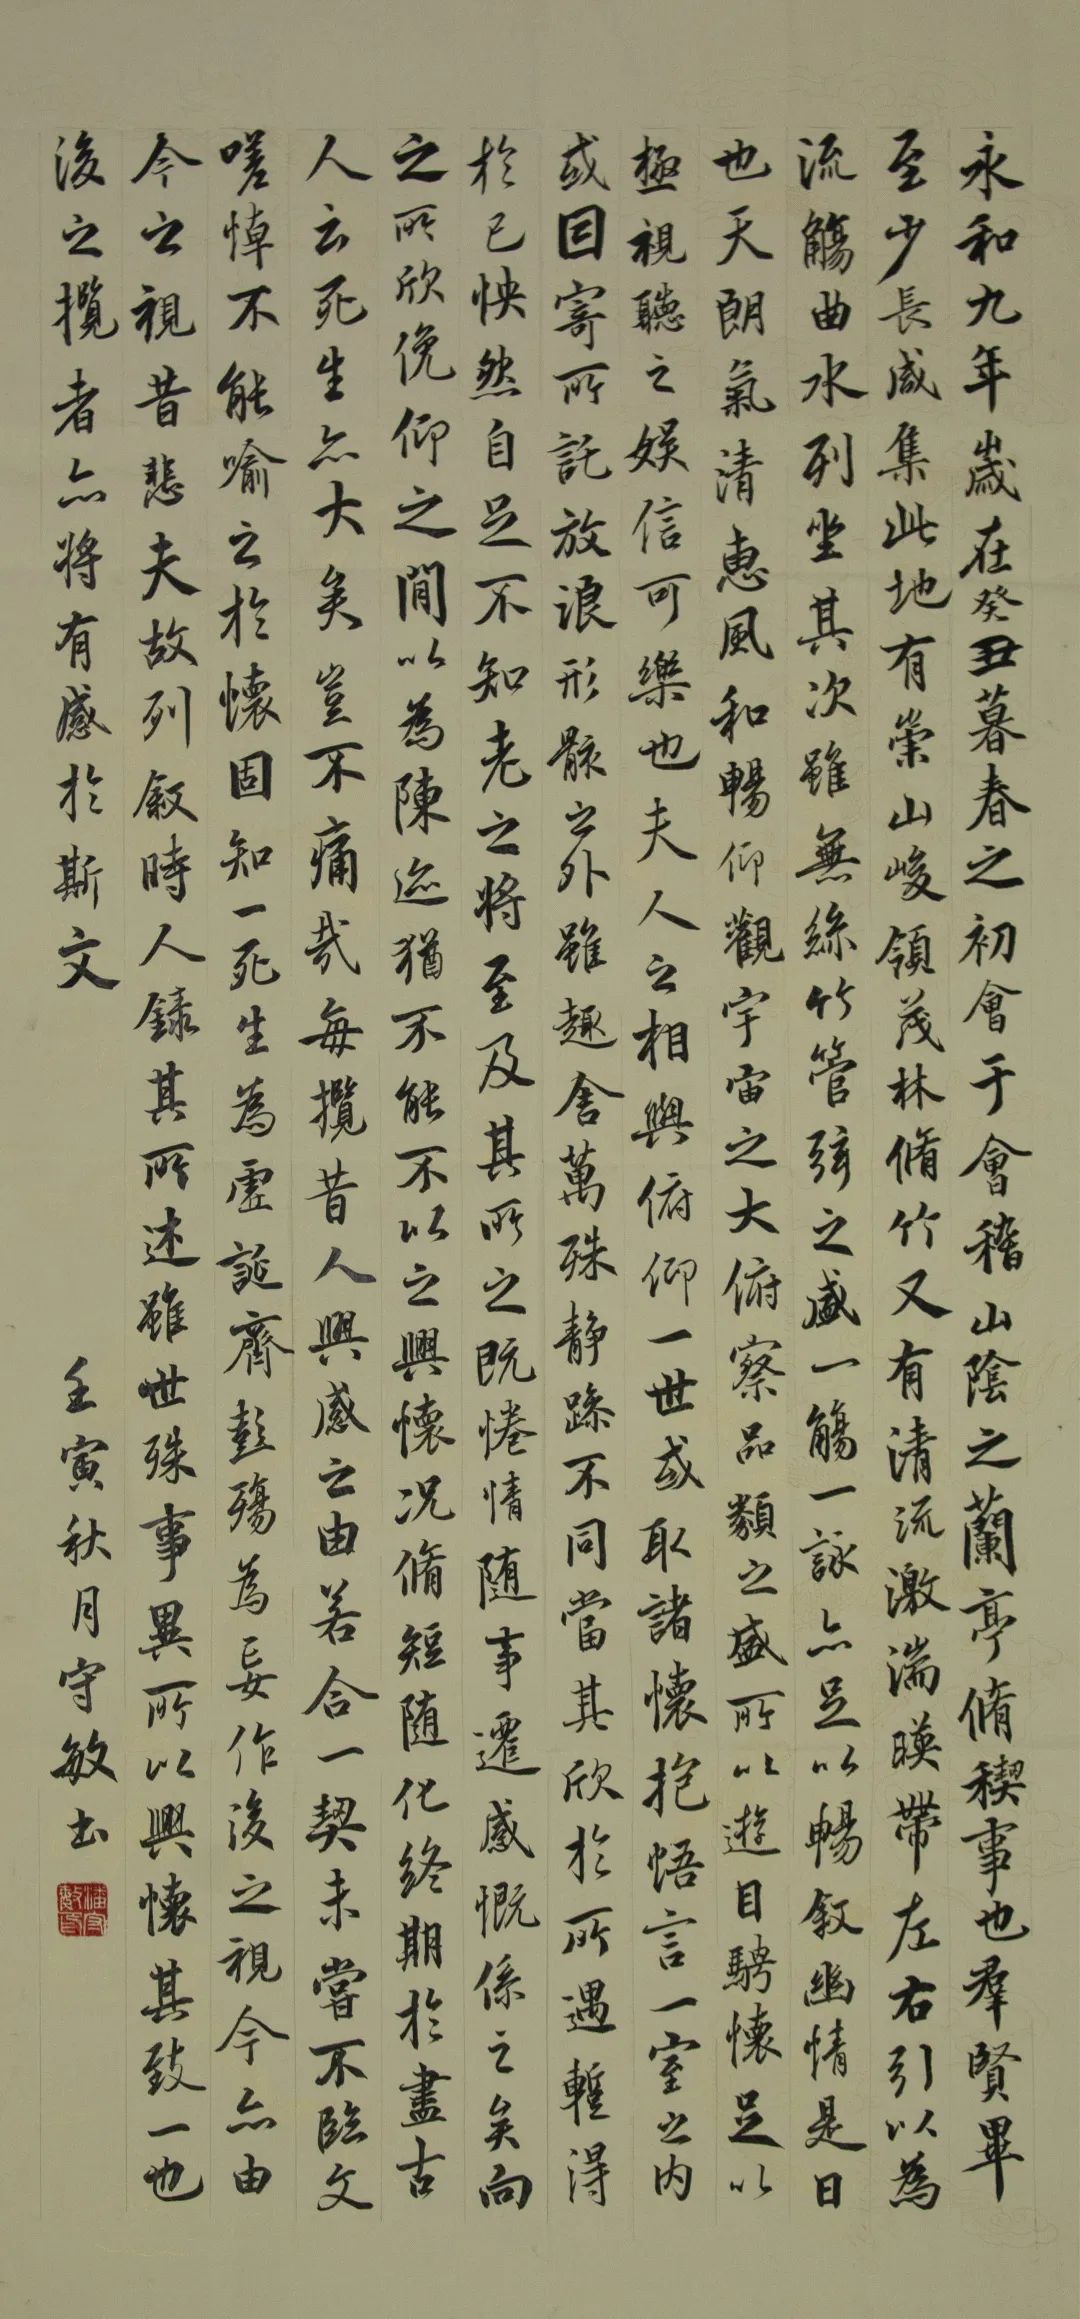 永和九年歲在癸丑暮春之初會于會稽山陰之蘭亭脩稧事也羣賢畢
至少長咸集此地有崇山峻領茂林脩竹又有清流激湍暎帶左右引以為
流觴曲水列坐其次雖無絲竹管弦之盛一觴一詠亦足以暢敘幽情是日
也天朗氣清惠風和暢仰觀宇宙之大俯察品類之盛所以遊目騁懷足以
極視聽之娛信可樂也夫人之相與俯仰一世或取諸懷抱悟言一室之內
或因寄所託放浪形骸之外雖趣舍萬殊靜躁不同當其欣於所遇暫得
於己怏然自足不知老之將至及其所之既惓情隨事遷感慨係之矣向
之所欣俛仰之閒以為陳迹猶不能不以之興懷況脩短隨化終期於盡古
人云死生亦大矣豈不痛哉每攬昔人興感之由若合一契未嘗不臨文
嗟悼不能喻之於懷固知一死生為虛誕齊彭殤為妄作後之視今亦由
今之視昔悲夫故列敘時人錄其所述雖世殊事異所以興懷其致一也
後之攬者亦將有感於斯文
壬寅秋月守敏書
潘守敏印